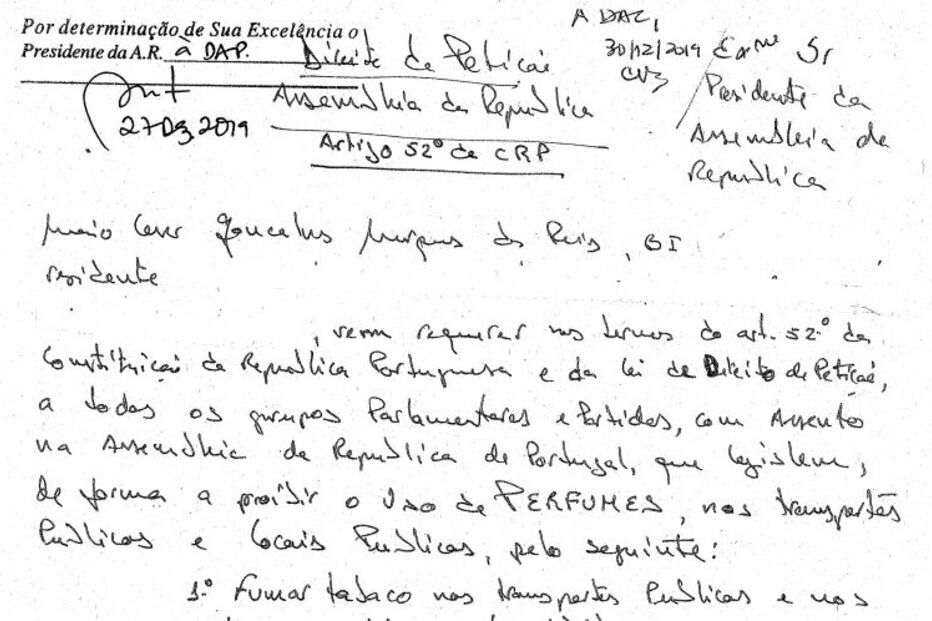 Por determinação de Sua Excelência o
Presidente da A.R. à DAP.
27 Dez 2019
Direito de Petição
Assembleia da República
Artigo 52º da CRP
A DAC,
30/12/2019
Exmº Sr
Presidente da
Assembleia da
República
Gonçalves dos Reis, BI
residente
, vem requerer nos termos do art. 52.º da
Constituição da República Portuguesa e da lei de Direito de Petição,
a todos os grupos Parlamentares e Partidos, com Assento
na Assembleia da República de Portugal, que legislem,
de forma a proibir o uso de PERFUMES, nos transportes
Públicos e locais Públicos, pelo seguinte:
1.º Fumar tabaco nos transportes Publicos e nos